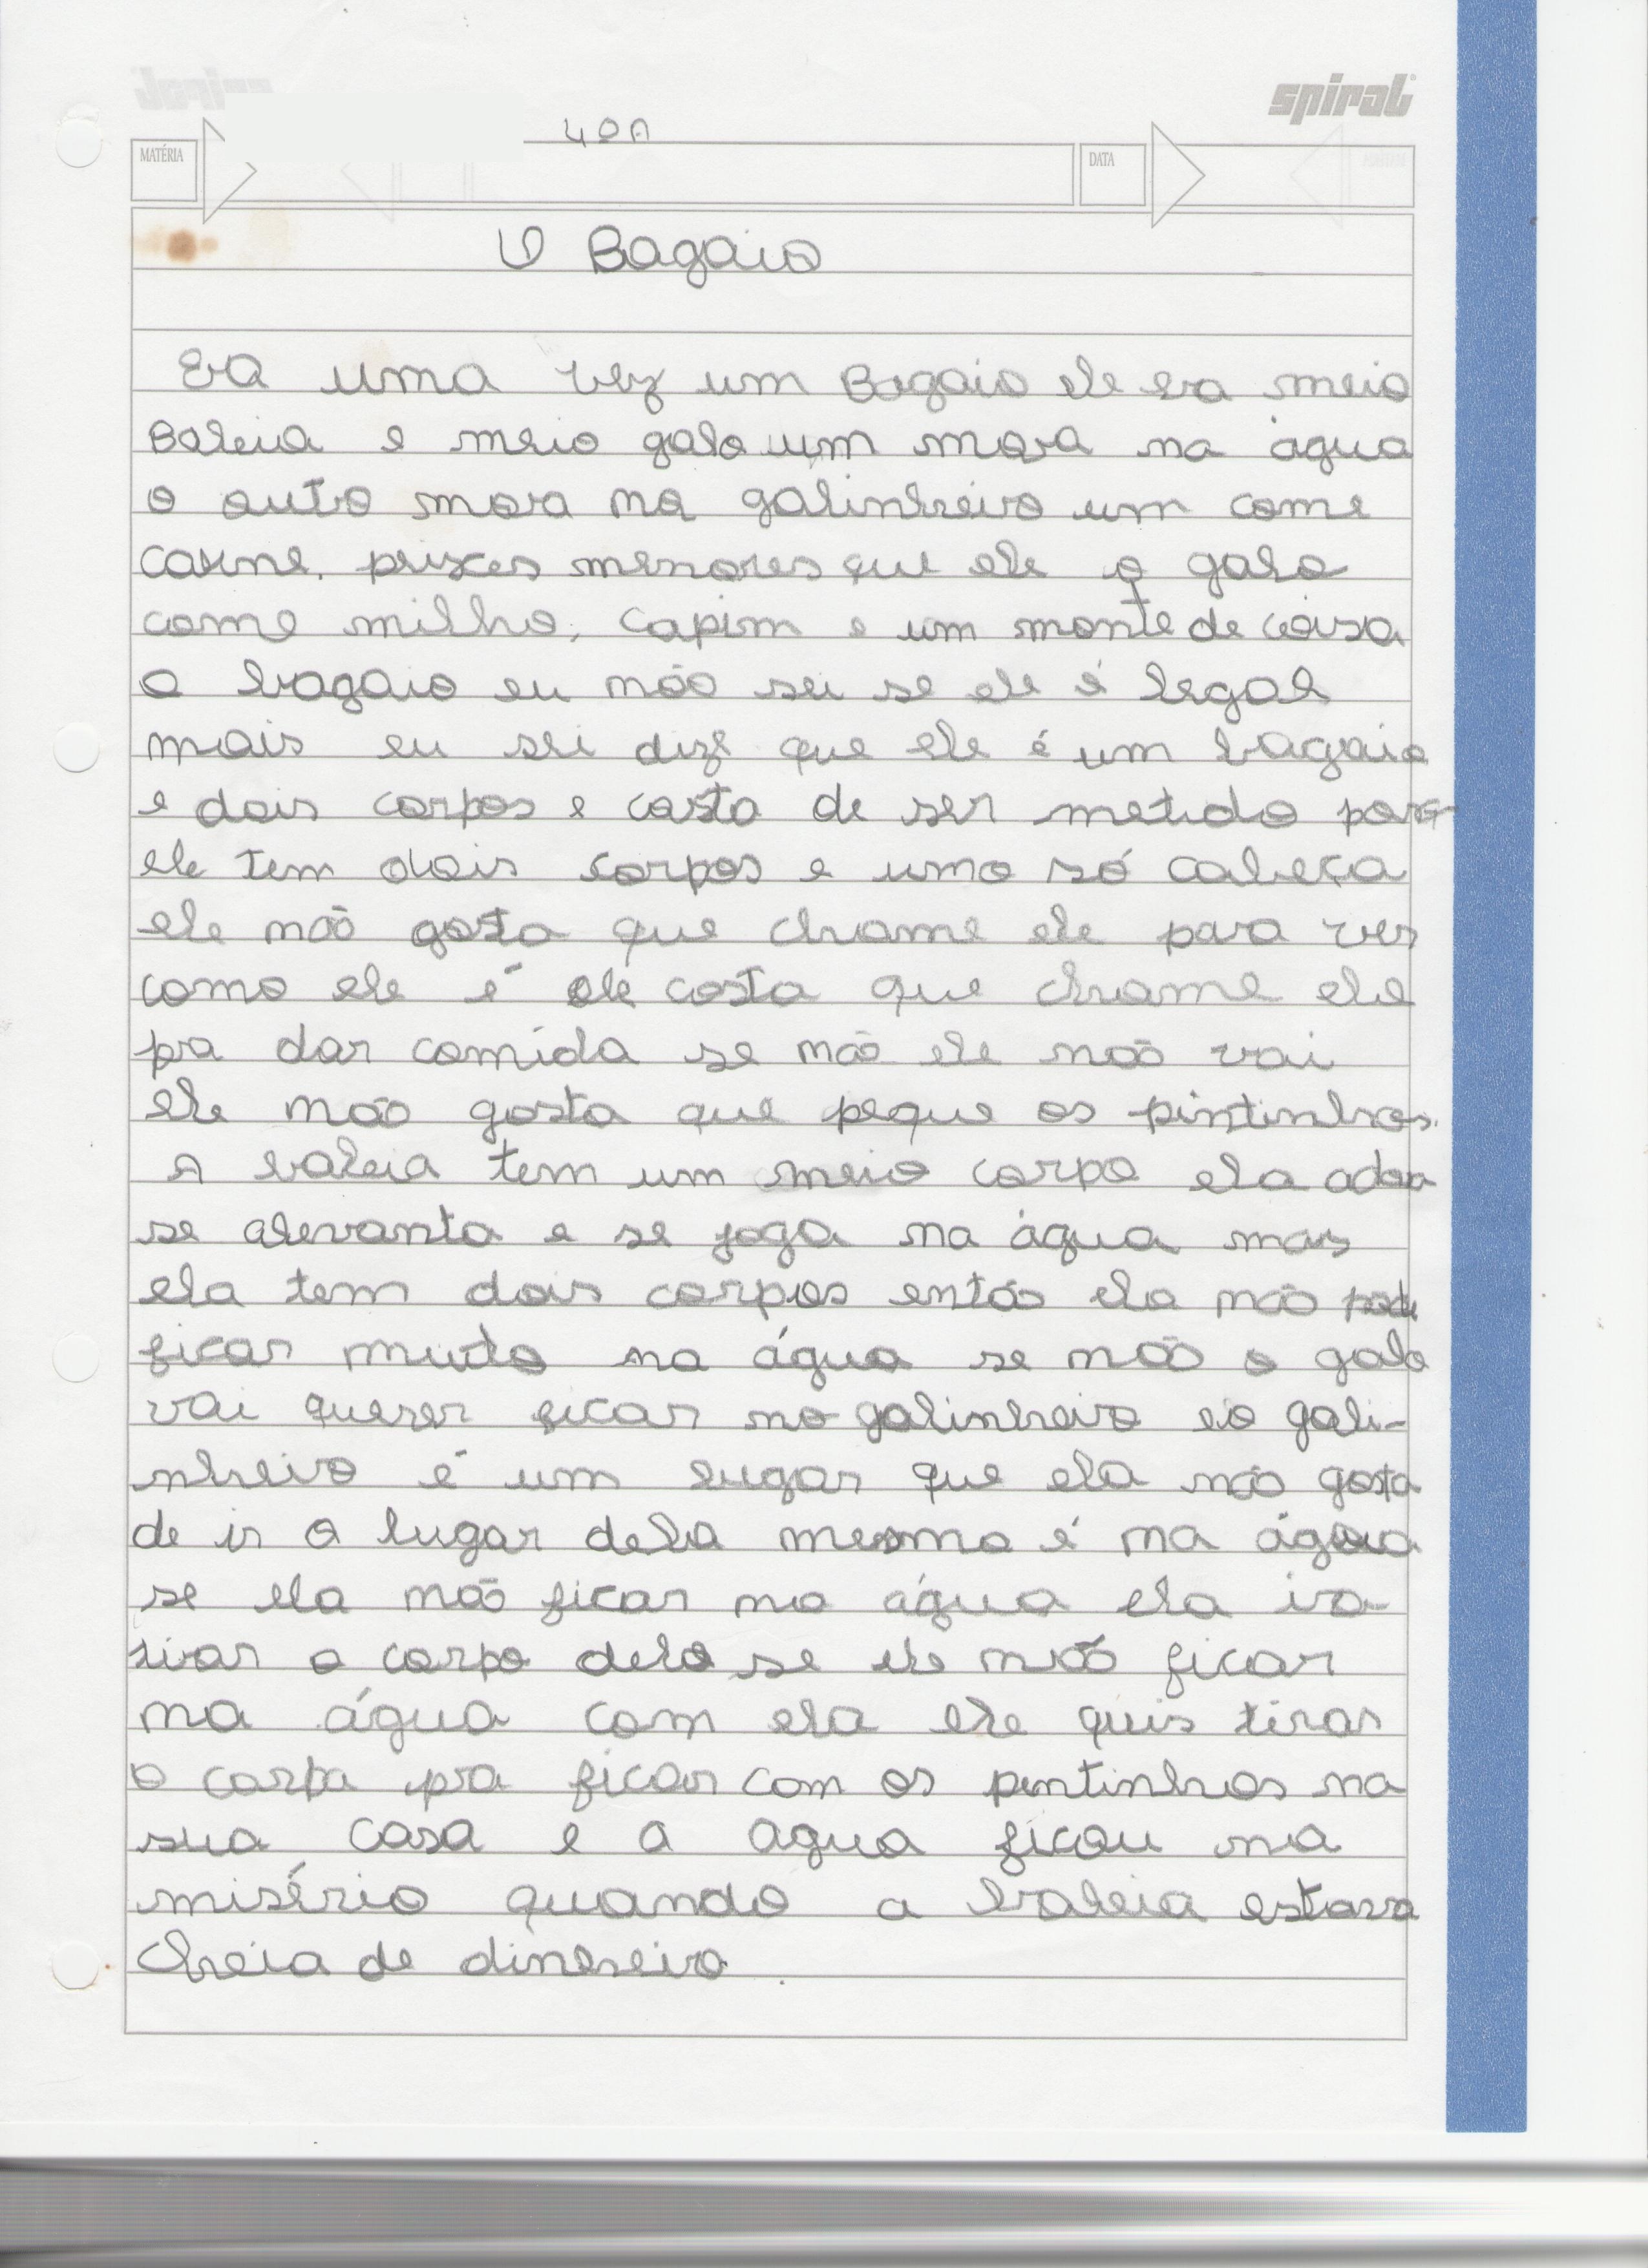 spiral
4ºA
MATÉRIA
DATA
O Bagaio
Era uma vez um Bagaio ele era meio
Baleia e meio galo um mora na água
o outro mora no galinheiro um come
carne. peixes menores que ele o galo
come milho, capim e um monte de coisa
o bagaio eu não sei se ele é legal
mais eu sei dize que ele é um bagaio
e dois corpos e costa de ser metido porq
ele tem dois corpos e uma só cabeça
ele não gosta que chame ele para ver
como ele é ele costa que chame ele
pra dar comida se não ele não vai
ele não gosta que peque os pintinhos.
A baleia tem um meio corpo ela adora
se alevanta e se joga na água mas
ela tem dois corpos então ela não pode
ficar muito na água se não o galo
vai querer ficar no galinheiro eo gali-
nheiro é um lugar que ela não gosta
de ir o lugar dela mesmo é na água
se ela não ficar na água ela ira
tirar o corpo dela se ele não ficar
na água com ela ele quis tirar
o corpo pra ficar com os pintinhos na
sua casa e a agua ficou na
misério quando a baleia estava
cheia de dinheiro.